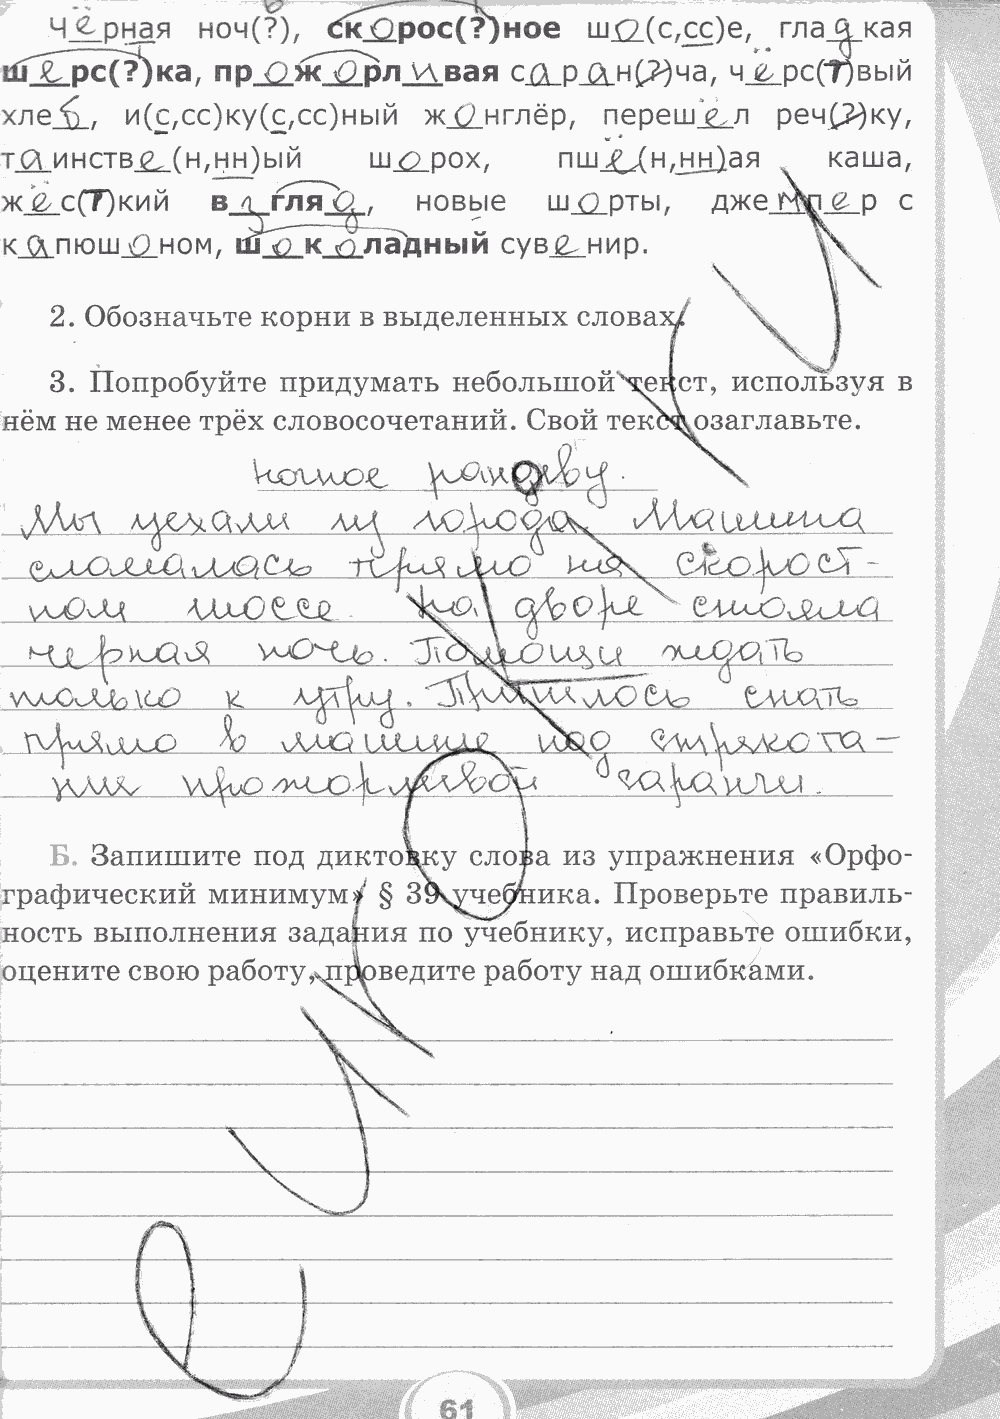 Чёрная ноч(?)ь, скорос(?)ное шо(с,сс)е, гладкая
шерс(?)ка, прожорливая саран(?)ча, чёрс(т)вый
хлеб, и(с,сс)ку(с,сс)ный жонглёр, перешёл реч(?)ку,
таинстве(н,нн)ый шорох, пшё(н,нн)ая каша,
жёс(т)кий взгляд, новые шорты, джемпер с
капюшоном, шоколадный сувенир.
2. Обозначьте корни в выделенных словах.
3. Попробуйте придумать небольшой текст, используя в
нём не менее трёх словосочетаний. Свой текст озаглавьте.
Ночное рандеву.
Мы уехали из города. Машина
сломалась прямо на скорост-
ном шоссе. На дворе стояла
черная ночь. Помощи ждать
только к утру. Пришлось спать
прямо в машине под стрякота-
ние прожорливой саранчи.
Б. Запишите под диктовку слова из упражнения «Орфо-
графический минимум» § 39 учебника. Проверьте правиль-
ность выполнения задания по учебнику, исправьте ошибки,
оцените свою работу, проведите работу над ошибками.
61